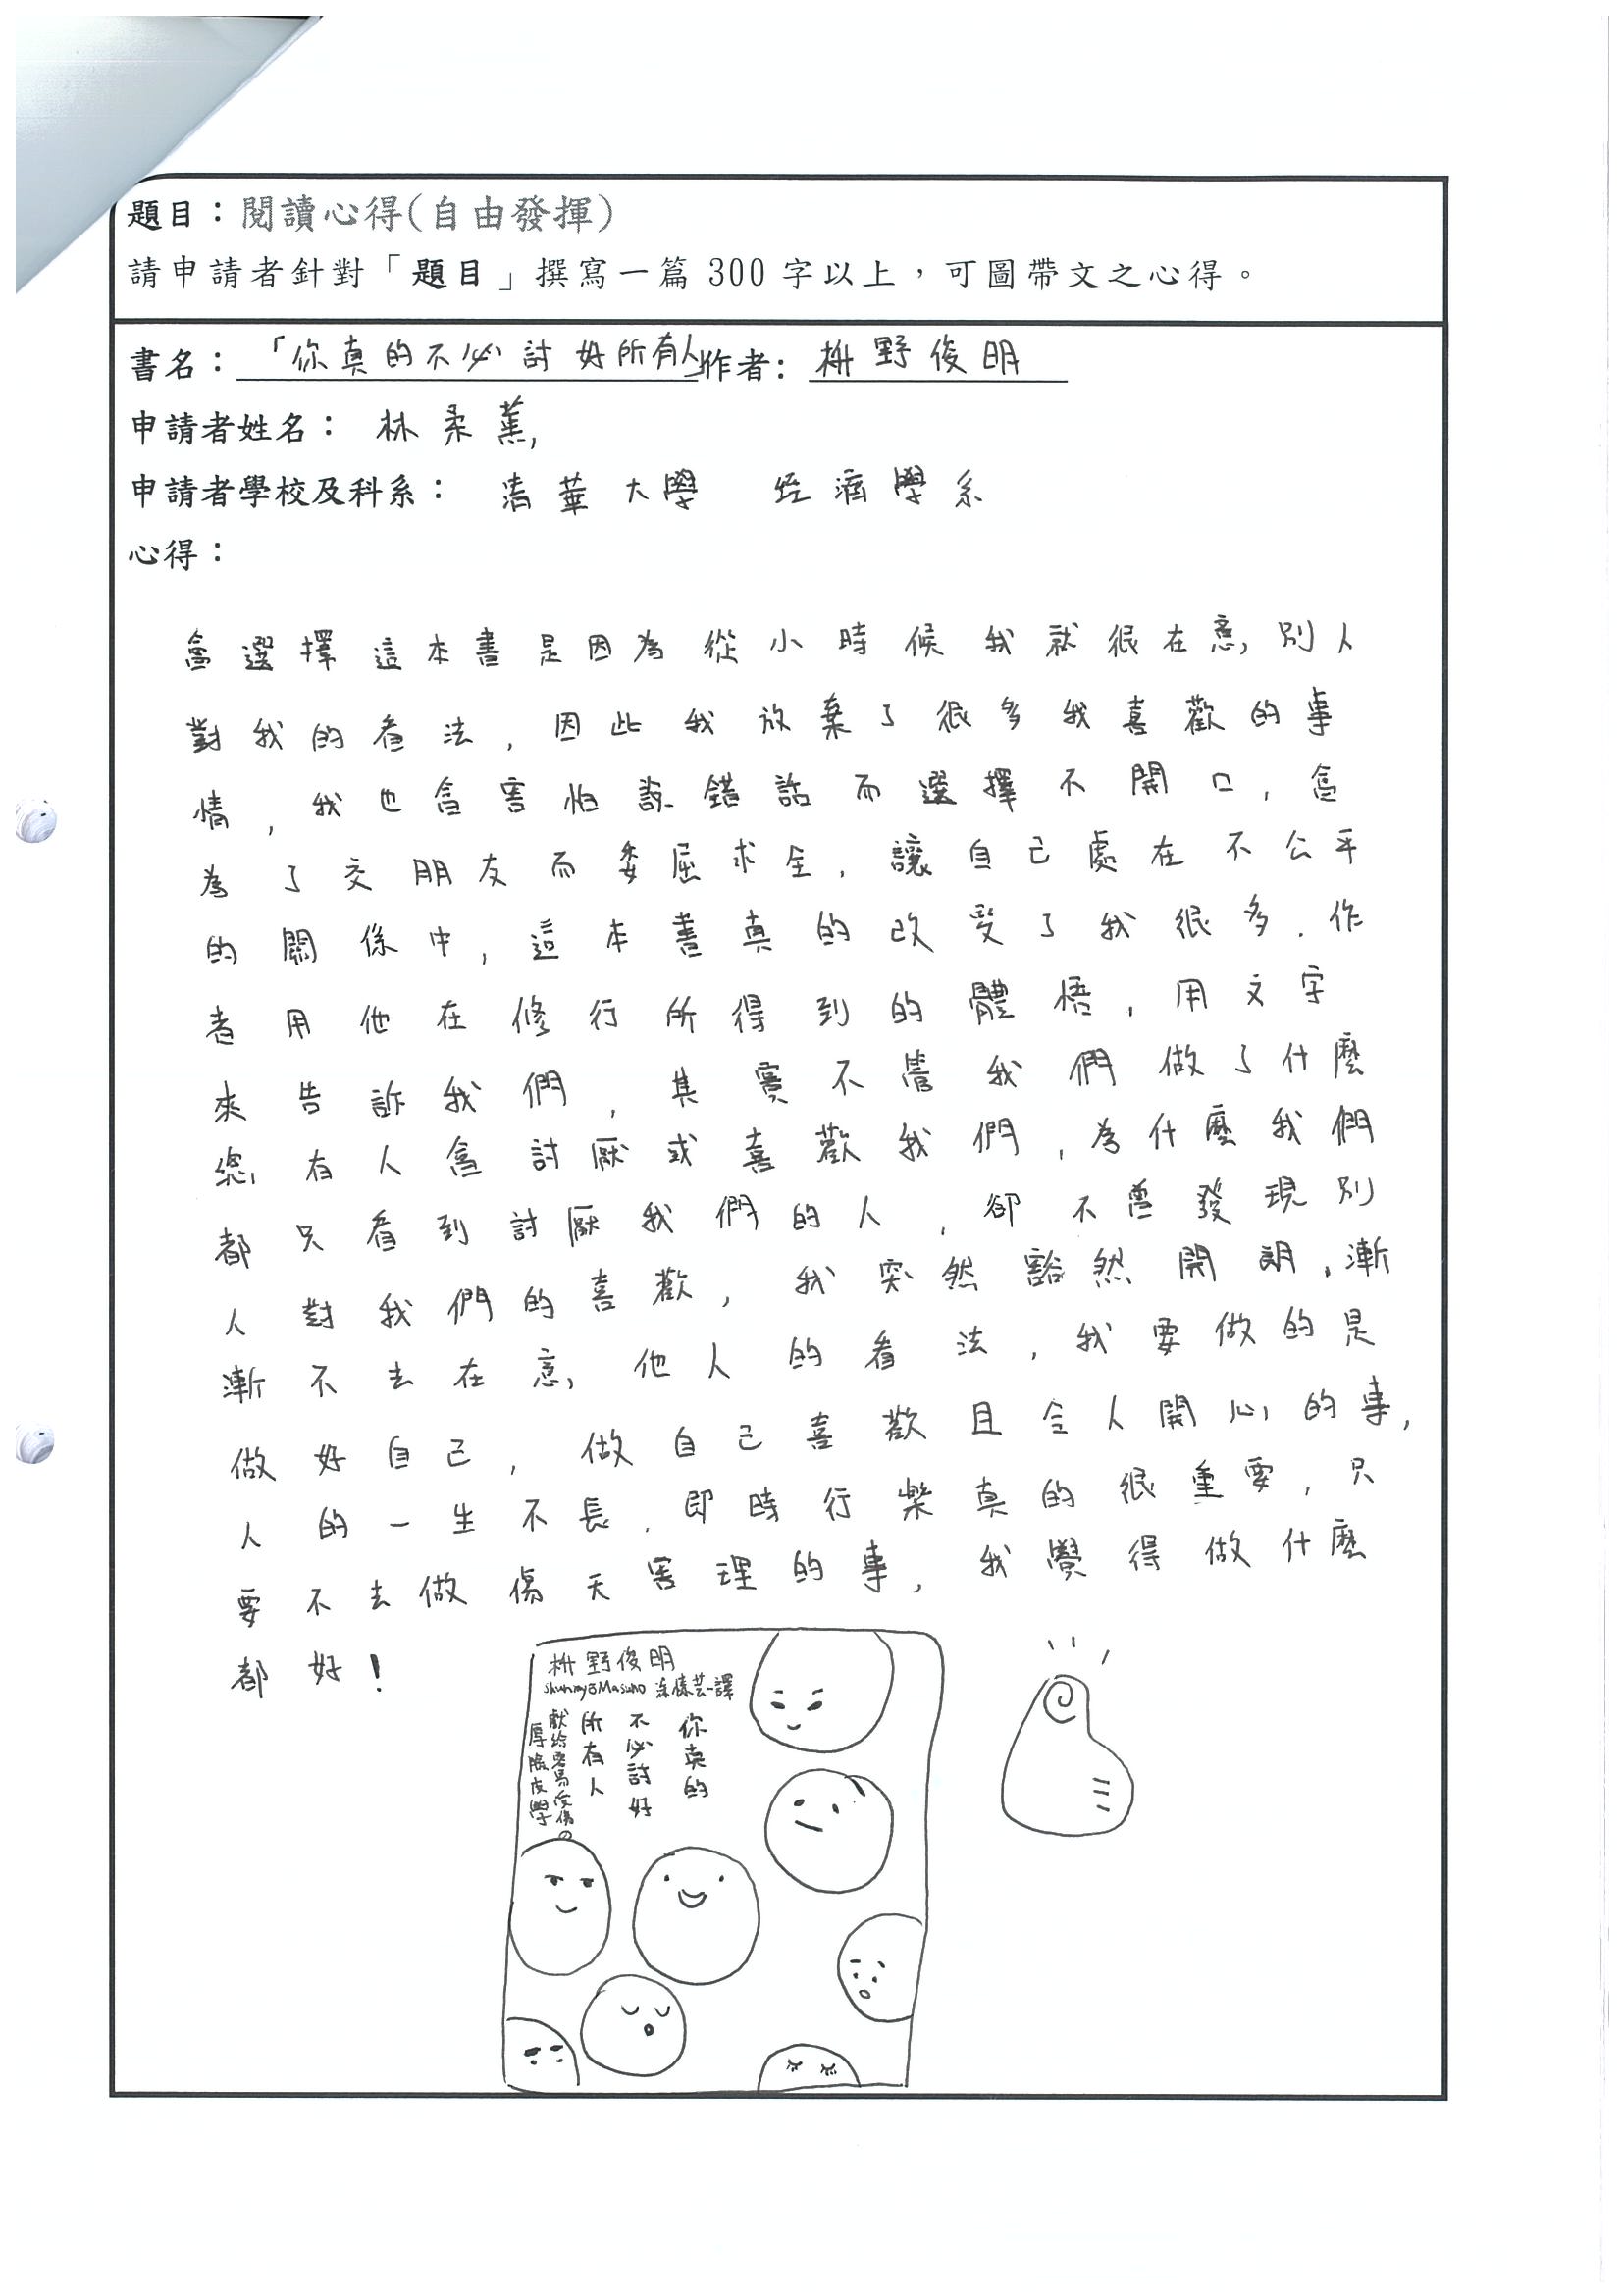 題目：閱讀心得(自由發揮)
請申請者針對「題目」撰寫一篇 300 字以上，可圖帶文之心得。
書名：「你真的不必討好所有人」作者: 枡野俊明
申請者姓名： 林柔蕙
申請者學校及科系： 清華大學 經濟學系
心得：
會選擇這本書是因為從小時候我就很在意別人
對我的看法，因此我放棄了很多我喜歡的事
情，我也會害怕說錯話而選擇不開口，會
為了交朋友而委屈求全，讓自己處在不公平
的關係中，這本書真的改變了我很多．作
者用他在修行所得到的體悟，用文字
來告訴我們，其實不管我們做了什麼
總有人會討厭或喜歡我們，為什麼我們
都只看到討厭我們的人，卻不曾發現別
人對我們的喜歡，我突然豁然開朗，漸
漸不去在意他人的看法，我要做的是
做好自己，做自己喜歡且令人開心的事，
人的一生不長．即時行樂真的很重要，只
要不去做傷天害理的事，我覺得做什麼
都好！
枡野俊明
Shunmyo Masuno 涂愫芸-譯
你真的
不必討好
所有人
獻給容易受傷の
厚臉皮學